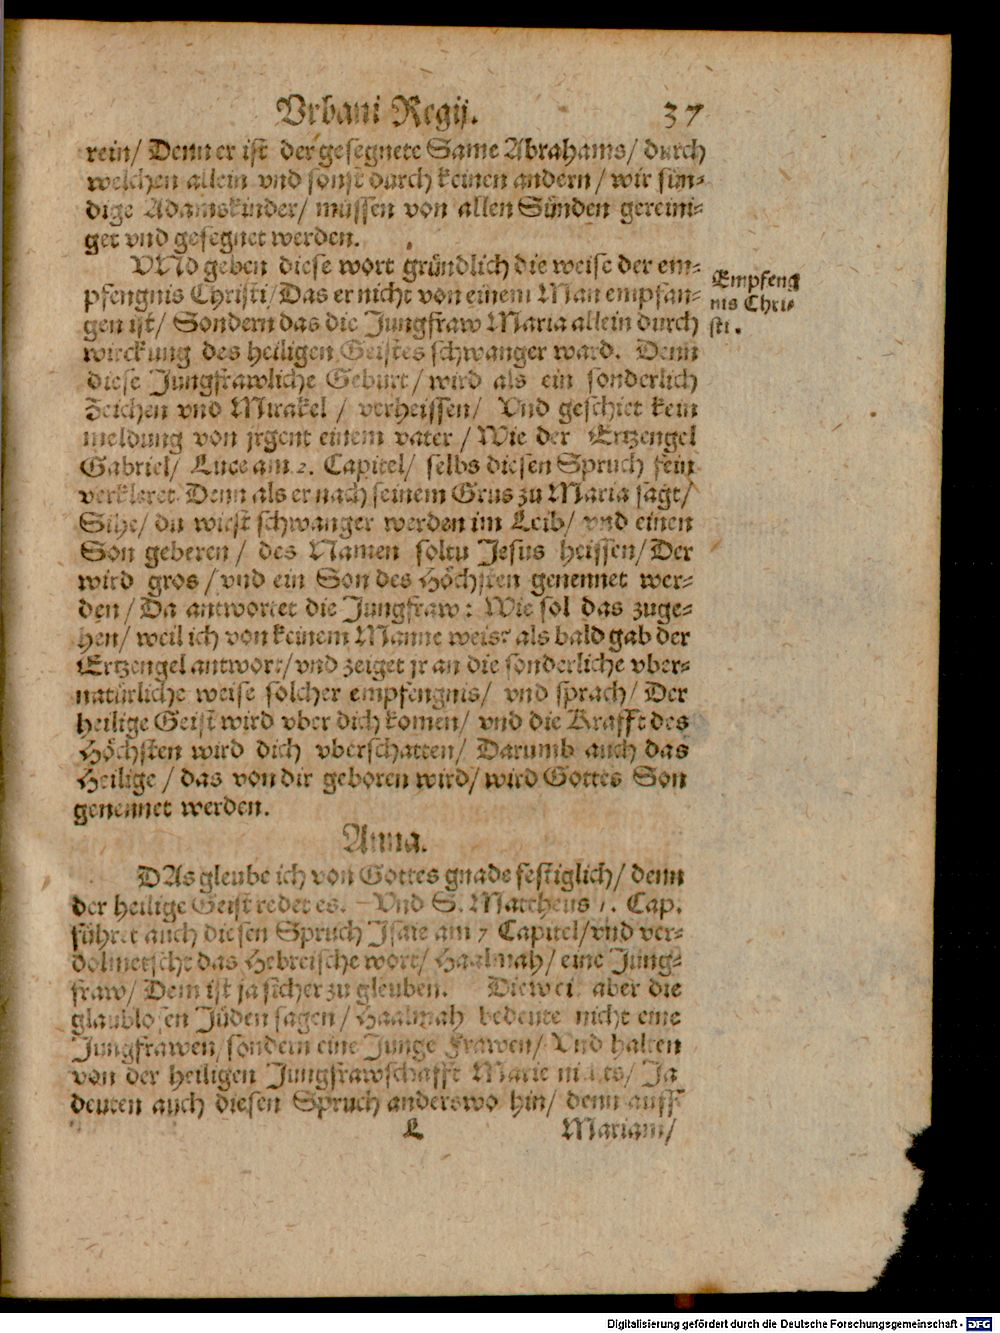 Vrbani Regij. 37
rein/ Denn er ist der gesegnete Same Abrahams/ durch
welchen allein vnd sonst durch keinen andern/ wir sün-
dige Adamskinder/ müssen von allen Sünden gereini-
get vnd gesegnet werden.
VNd geben diese wort gründlich die weise der em-
pfengnis Christi/ Das er nicht von einem Man empfan-
gen ist/ Sondern das die Jungfraw Maria allein durch
wirckung des heiligen Geistes schwanger ward. Denn
diese Jungfrawliche Geburt/ wird als ein sonderlich
Zeichen vnd Mirakel/ verheissen/ Vnd geschiet kein
meldung von jrgent einem vater/ Wie der Ertzengel
Gabriel/ Luce am 2. Capitel/ selbs diesen Spruch fein
verkleret. Denn als er nach seinem Grus zu Maria sagt/
Sihe/ du wirst schwanger werden im Leib/ vnd einen
Son geberen/ des Namen soltu Jesus heissen/ Der
wird gros/ vnd ein Son des Höchsten genennet wer-
den/ Da antwortet die Jungfraw: Wie sol das zuge-
hen/ weil ich von keinem Manne weis? als bald gab der
Ertzengel antwort/ vnd zeiget jr an die sonderliche vber-
natürliche weise solcher empfengnis/ vnd sprach/ Der
heilige Geist wird vber dich komen/ vnd die Krafft des
Höchsten wird dich vberschatten/ Darumb auch das
Heilige/ das von dir geboren wird/ wird Gottes Son
genennet werden.
Empfeng
nis Chri-
sti.
Anna.
DAs gleube ich von Gottes gnade festiglich/ denn
der heilige Geist redet es. Vnd S. Mattheus 1. Cap.
führet auch diesen Spruch Jsaie am 7 Capitel/ vnd ver-
dolmetscht das Hebreische wort/ Haalmah/ eine Jung-
fraw/ Dem ist ja sicher zu gleuben. Dieweil aber die
glaublosen Jüden sagen/ Haalmah bedeute nicht eine
Jungfrawen/ sondern eine Junge Frawen/ Vnd halten
von der heiligen Jungfrawschafft Marie nichts/ Ja
deuten auch diesen Spruch anderswo hin/ denn auff
L Mariam/
Digitalisierung gefördert durch die Deutsche Forschungsgemeinschaft - DFG